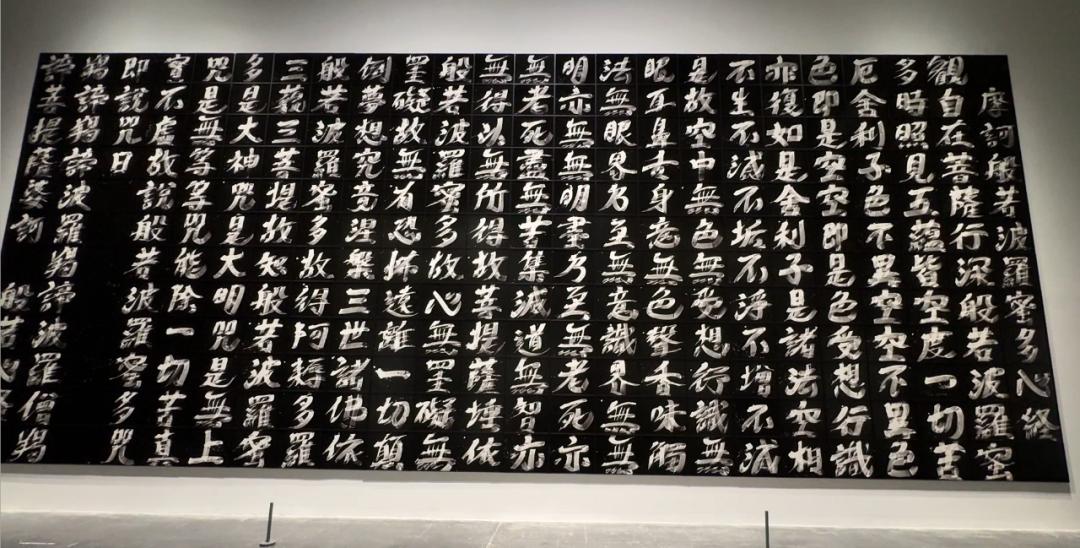 摩訶般若波羅蜜多心経
観自在菩薩行深般若波羅蜜
多時照見五蘊皆空度一切苦
厄舎利子色不異空空不異色
色即是空空即是色受想行識
亦復如是舎利子是諸法空相
不生不滅不垢不浄不増不減
是故空中無色無受想行識無
眼耳鼻舌身意無色聲香味觸
法無眼界乃至無意識界無無
明亦無無明盡乃至無老死亦
無老死盡無苦集滅道無智亦
無得以無所得故菩提薩埵依
般若波羅蜜多故心無罣礙無
罣礙故無有恐怖遠離一切顛
倒夢想究竟涅槃三世諸佛依
般若波羅蜜多故得阿耨多羅
三藐三菩提故知般若波羅蜜
多是大神咒是大明咒是無上
咒是無等等咒能除一切苦真
實不虛故說般若波羅蜜多咒
即說咒曰
羯諦羯諦波羅羯諦波羅僧羯
諦菩提薩婆訶
般若心